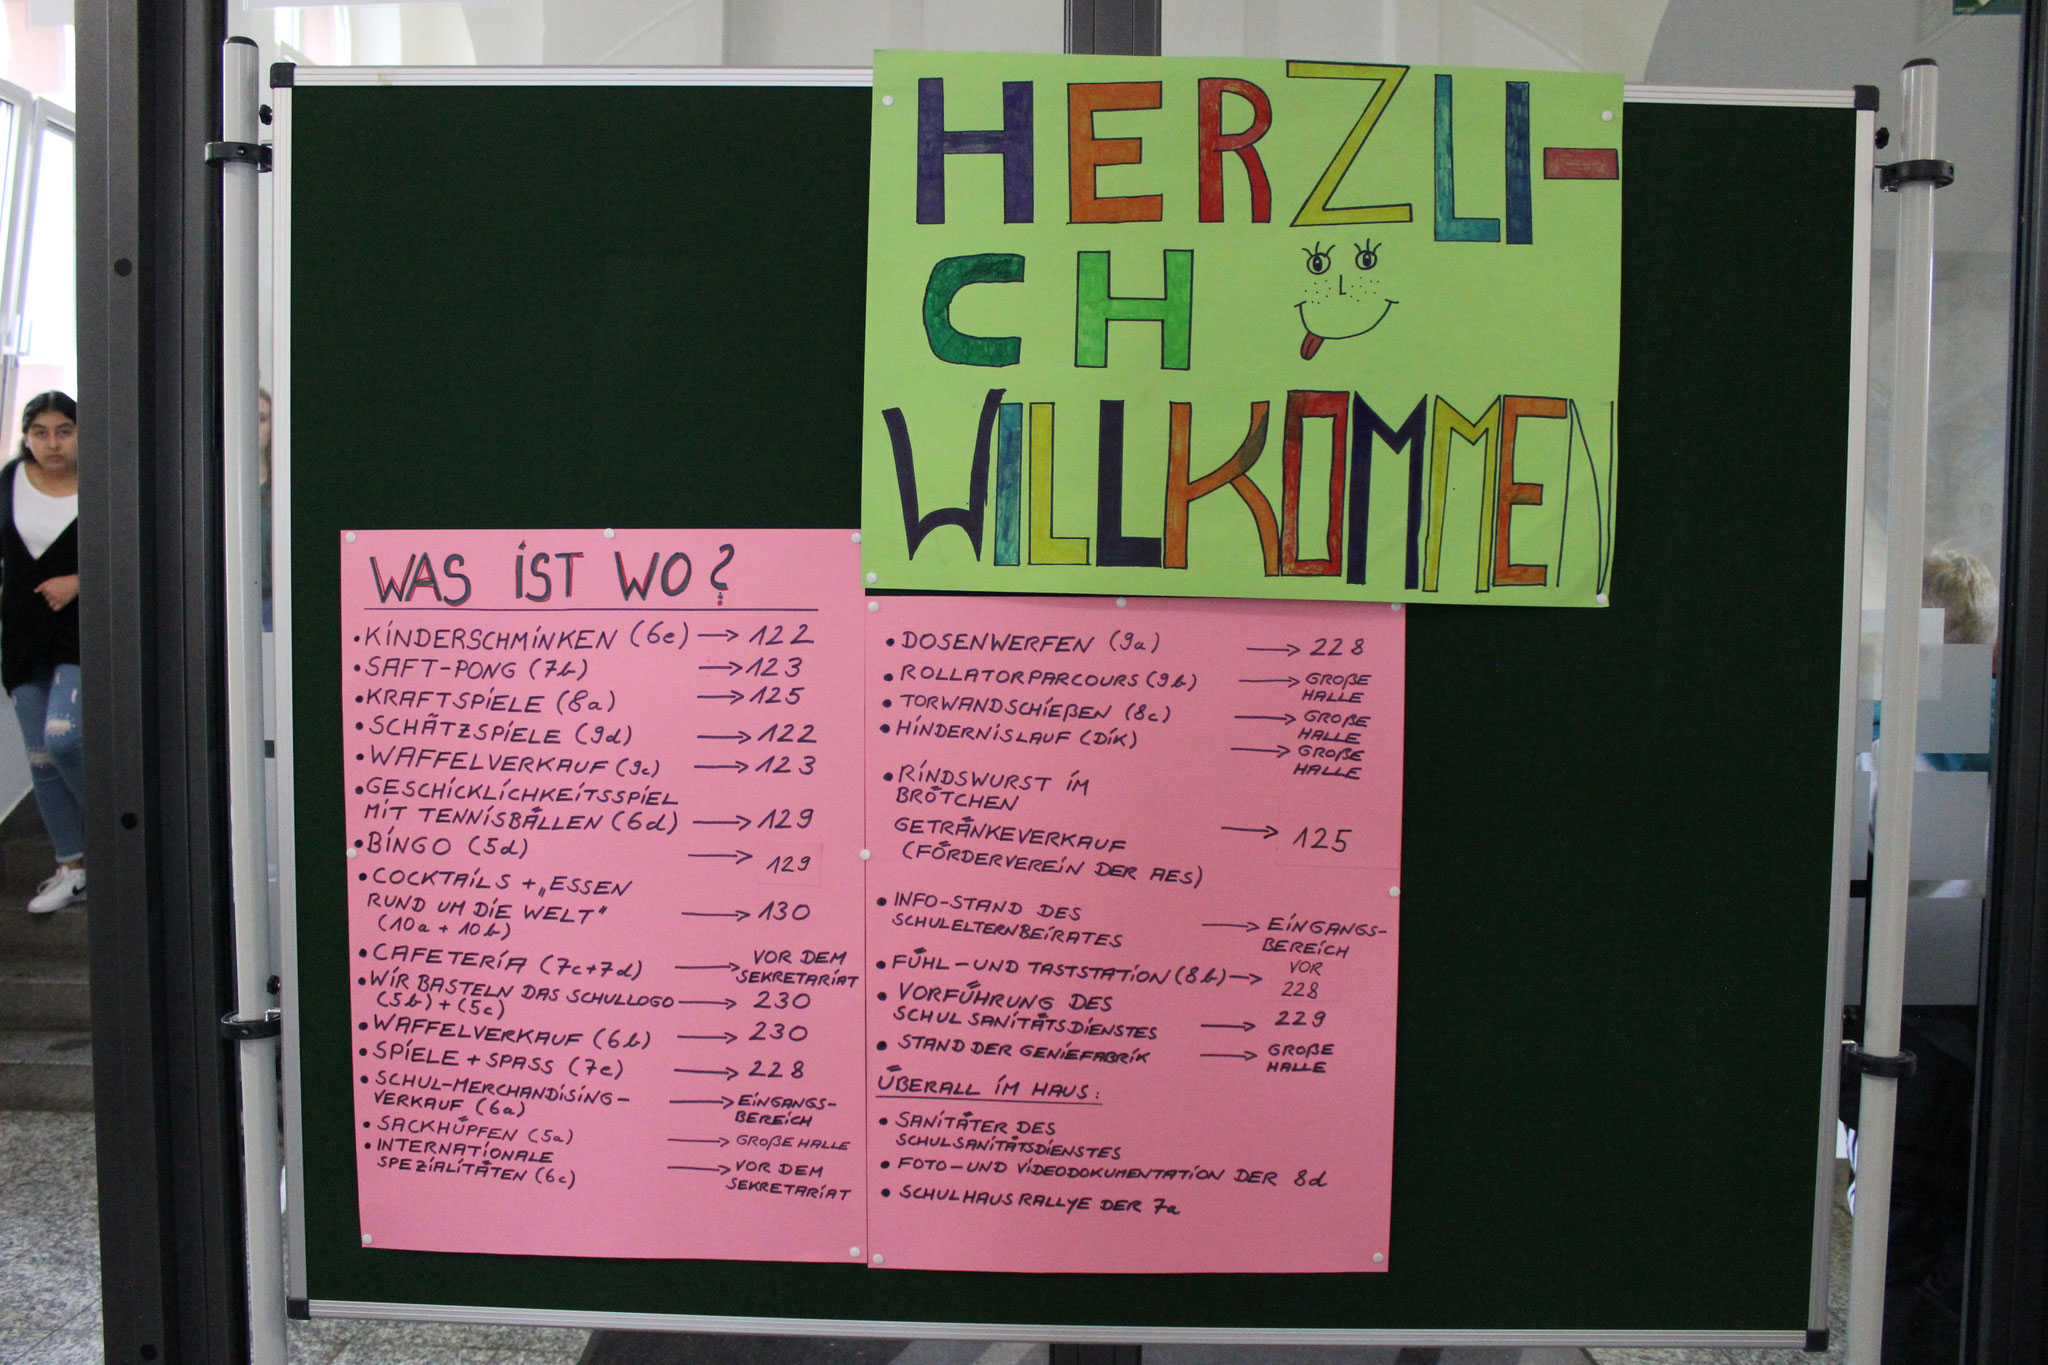 HERZLI-
CH
WILLKOMMEN
WAS IST WO?
• KINDERSCHMINKEN (6e) → 122
• SAFT-PONG (7b) → 123
• KRAFTSPIELE (8a) → 125
• SCHÄTZSPIELE (9d) → 122
• WAFFELVERKAUF (9c) → 123
• GESCHICKLICHKEITSSPIEL
MIT TENNISBÄLLEN (6d) → 129
• BINGO (5d) → 129
• COCKTAILS + „ESSEN
RUND UM DIE WELT" → 130
(10a + 10b)
• CAFETERIA (7c+7d) → VOR DEM
SEKRETARIAT
• WIR BASTELN DAS SCHULLOGO → 230
(5b) + (5c)
• WAFFELVERKAUF (6b) → 230
• SPIELE + SPASS (7e) → 228
• SCHUL-MERCHANDISING-
VERKAUF (6a) → EINGANGS-
BEREICH
• SACKHÜPFEN (5a) → GROßE HALLE
• INTERNATIONALE
SPEZIALITÄTEN (6c) → VOR DEM
SEKRETARIAT
• DOSENWERFEN (9a) → 228
• ROLLATORPARCOURS (9b) → GROßE
HALLE
• TORWANDSCHIEßEN (8c) → GROßE
HALLE
• HINDERNISLAUF (DIK) → GROßE
HALLE
• RINDSWURST IM
BRÖTCHEN
GETRÄNKEVERKAUF → 125
(FÖRDERVEREIN DER AES)
• INFO-STAND DES
SCHULELTERNBEIRATES → EINGANGS-
BEREICH
• FÜHL-UND TASTSTATION (8b) → VOR
228
• VORFÜHRUNG DES
SCHULSANITÄTSDIENSTES → 229
• STAND DER GENIEFABRIK → GROßE
HALLE
ÜBERALL IM HAUS:
• SANITÄTER DES
SCHULSANITÄTSDIENSTES
• FOTO-UND VIDEODOKUMENTATION DER 8d
• SCHULHAUSRALLYE DER 7a